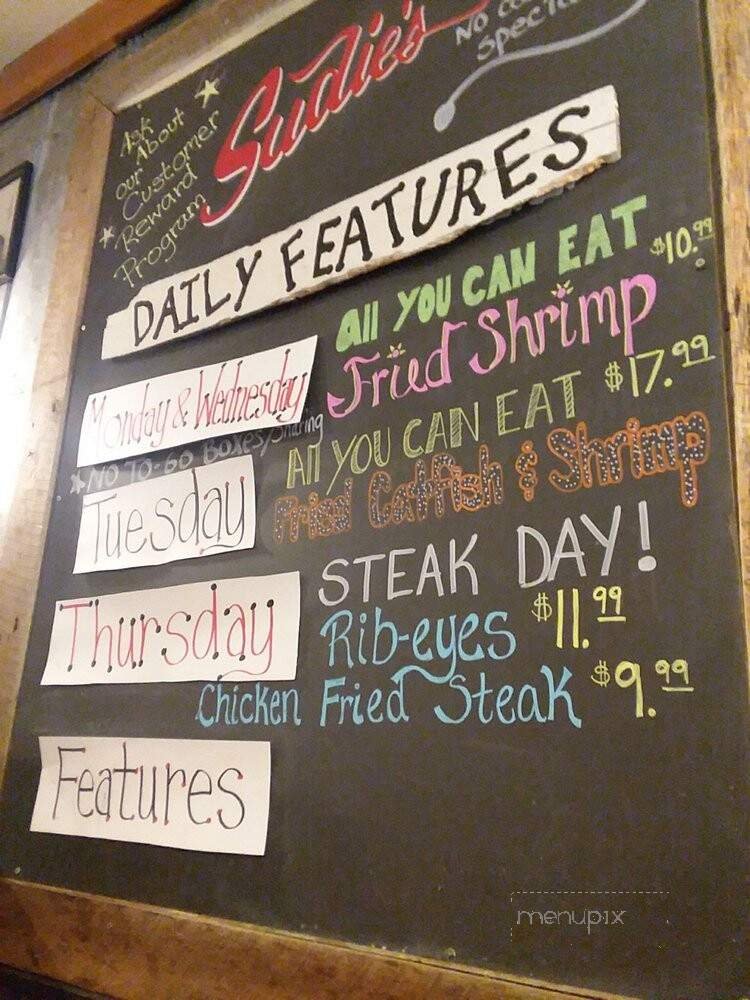 Ask
About
our
Customer
Reward
Program
Sudie's
No
DAILY FEATURES
Monday & Wednesday
all YOU CAN EAT $10.99
Fried Shrimp
*NO TO-GO BOXES/Sharing
Tuesday
All YOU CAN EAT $17.99
Fried Catfish & Shrimp
Thursday
STEAK DAY!
Rib-eyes $11.99
Chicken Fried Steak $9.99
Features
menupix